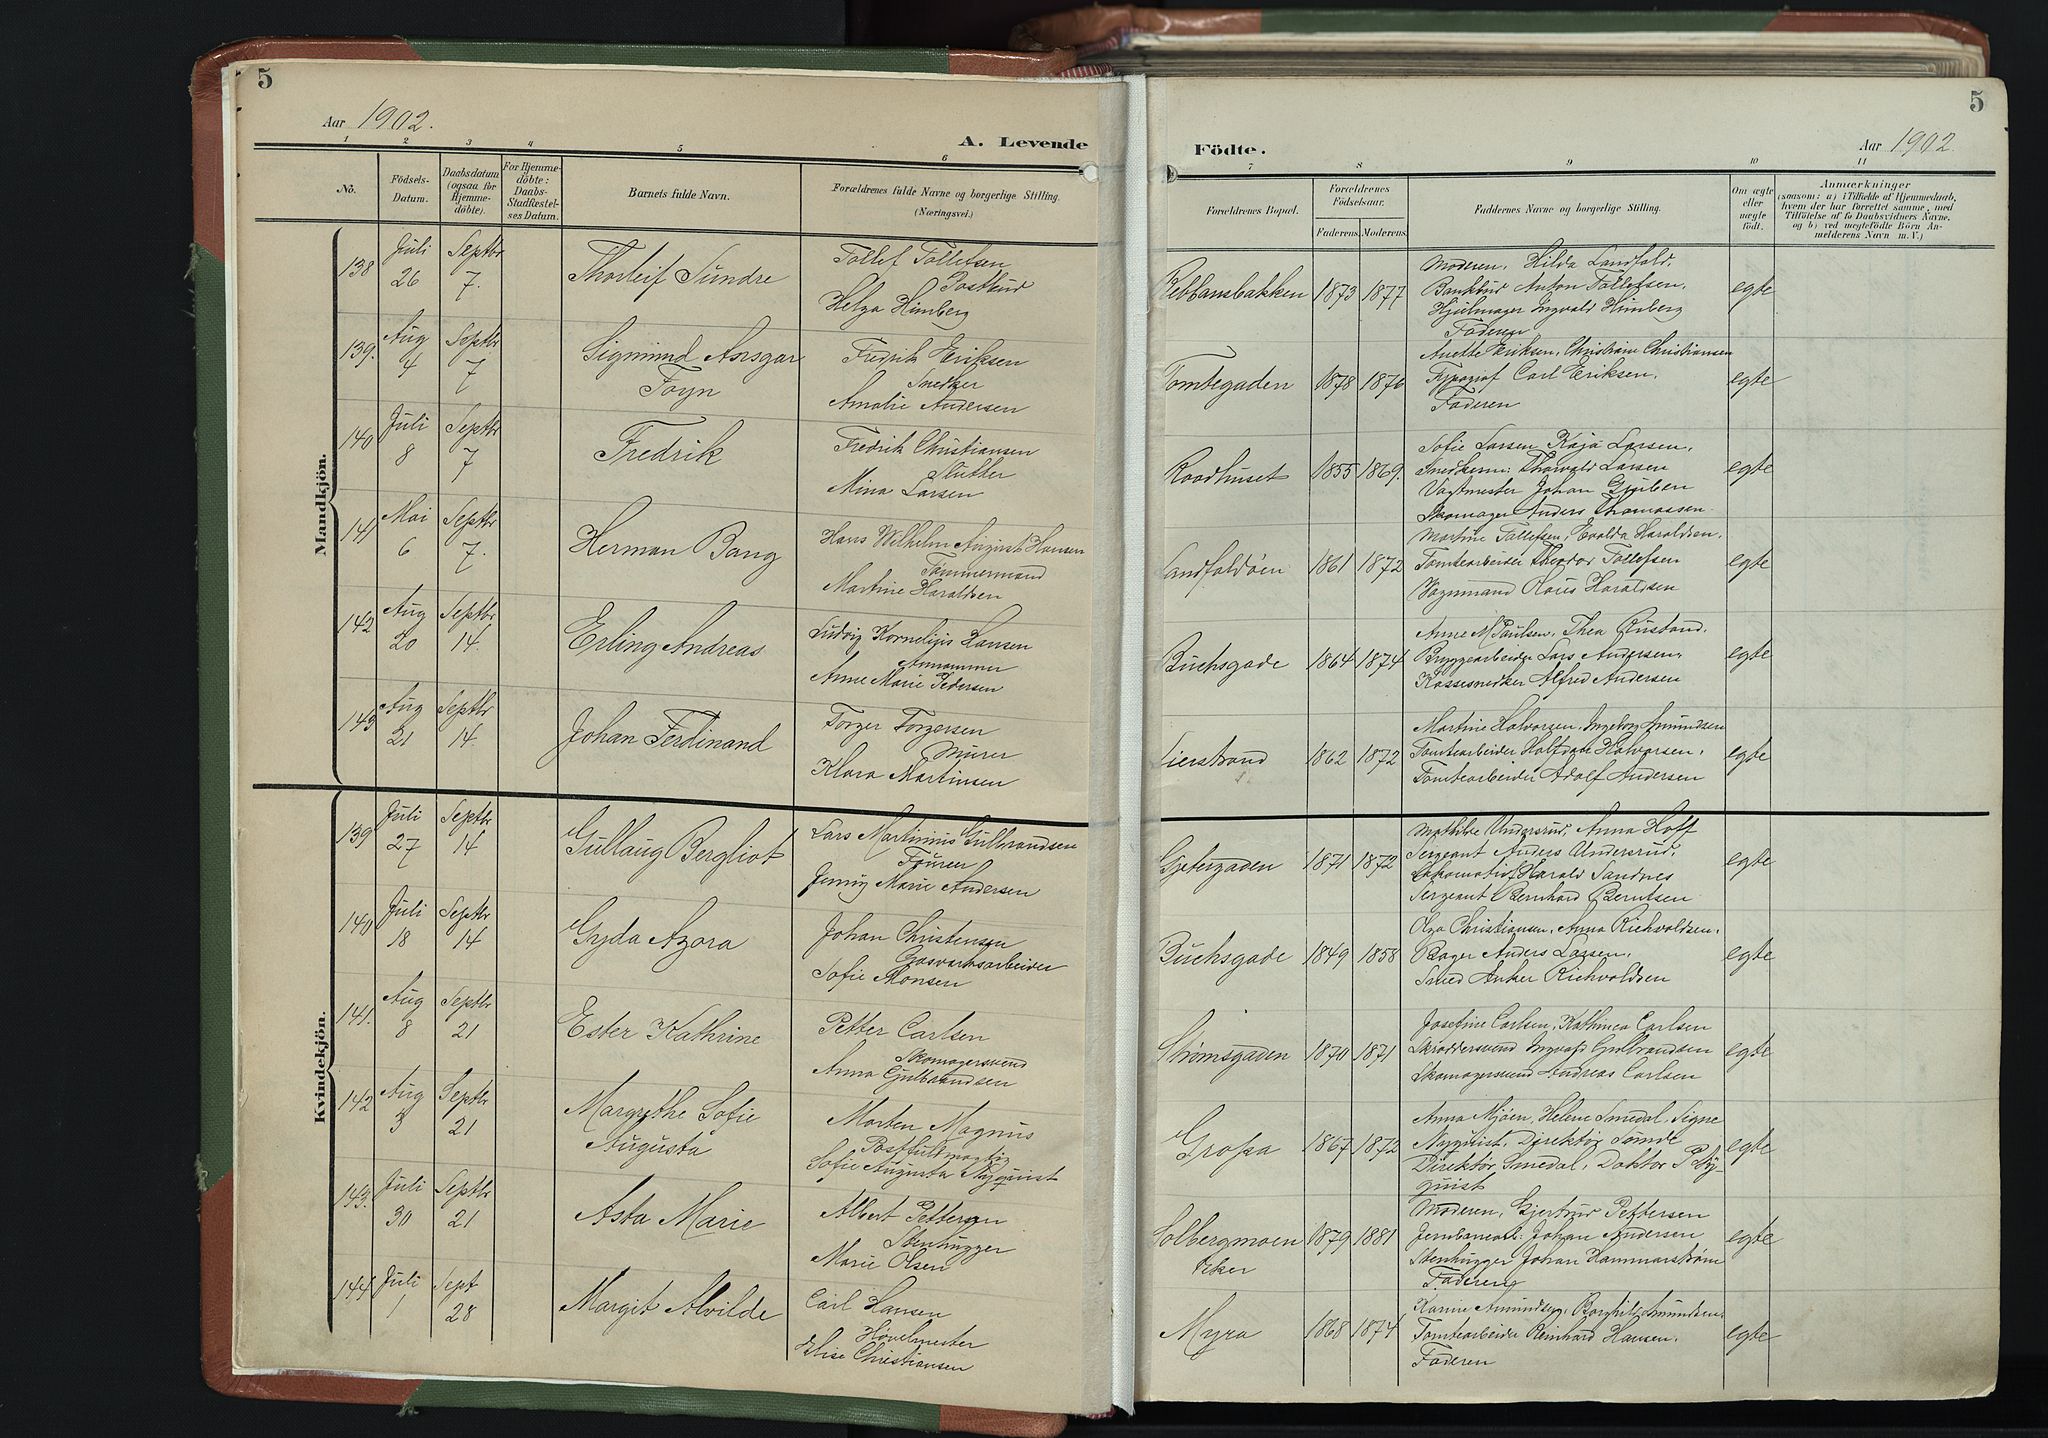 5
Aar 1902.
A. Levende
1 2 3 4 5 6
No.
Födsels-
Datum.
Daabsdatum
(ogsaa for
Hjemme-
döbte).
For Hjemme-
döbte:
Daabs-
Stadfæstel-
ses Datum.
Barnets fulde Navn.
Forældrenes fulde Navne og borgerlige Stilling.
(Næringsvei.)
Mandkjön.
138 Juli 26 Septbr 7. Thorleif Sundre
Tollef Tollefsen
Postbud
Helga Himberg
139. Aug 4 Septbr 7 Sigmund Ansgar
Foyn
Fredrik Eriksen
Snedker
Amalie Andersen
140 Juli 8 Septbr 7 Fredrik
Fredrik Christiansen
Slutter
Mina Larsen
141 Mai 6 Septbr 7. Herman Bang
Hans Wilhelm August Hansen
Tømmermand
Martine Haraldsen
142 Aug 20 Septbr 14. Erling Andreas
Ludvig Kornelius Hansen
Anne Marie Pedersen
143 Aug 21 Septbr 14. Johan Ferdinand
Torger Torgersen
Murer
Klara Martinsen
Kvindekjön.
139 Juli 27 Septbr 14 Gullaug Bergliot
Lars Martinius Gulbrandsen
Jenny Marie Andersen
140 Juli 18 Septbr 14 Gyda Azora
Johan Christensen
Gasværksarbeider
Sofie Monsen
141. Aug 8 Septbr 21 Ester Kathrine
Petter Carlsen
Skomagersvend
Anna Gulbrandsen
142 Aug 3 Septbr 21 Margrethe Sofie
Augusta
Morten Magnus
Postfuldmægtig
Sofie Augusta Nyquist
143. Juli 30 Septbr 21 Asta Marie
Albert Pettersen
Stenhugger
Marie Olsen
144 Juli 1 Sept 28 Margit Alvilde
Carl Hansen
Høvelmester
Elise Christiansen
5
Födte.
Aar 1902.
7 8 9 10 11
Forældrenes Bopæl.
Forældrenes
Födselsaar.
Faderens. Moderens.
Faddernes Navne og borgerlige Stilling.
Om ægte
eller
uægte
födt.
Anmærkninger
(saasom: a) i Tilfælde af Hjemmedaab,
hvem der har forrettet samme, med
Tilföielse af to Daabsvidners Navne,
og b) ved uægtefödte Börn An-
melderens Navn m. V.)
Rebbansbakken 1873 1877 egte
Moderen, Hilda Landfald,
Bankbud Anton Tollefsen,
Hjulmager Ingvald Himberg
Faderen
Tomtegaden 1878 1876 egte
Anette Eriksen, Christiane Christiansen
Typograf Carl Eriksen,
Faderen
Raadhuset 1855 1869. egte
Sofie Larsen, Kaja Larsen,
Snedkerm: Thorvald Larsen
Vagtmester Johan Gulben
Skomager Anders Thomassen
Landfaldøen 1861 1872 egte
Martine Tollefsen, Evalda Haraldsen,
Tomtearbeider Theodor Tollefsen
Vognmand Haraldsen
Buchsgade 1864 1874 egte
Anne M Paulsen, Thea Rustand,
Bryggearbeider Lars Andersen,
Kassesnedker Alfred Andersen
Lierstrand 1862 1872 egte
Martine Halvorsen, Ingeborg Amundsen
Tomtearbeider Halfdan Halvorsen,
Tomtearbeider Adolf Andersen
Gjetergaden 1871 1872 egte
Mathilde Undersrud, Anna Hoff
Sergeant Anders Undersrud,
Lokomotivf Harald Sandnes
Sergeant Bernhard Berntsen
Buchsgade 1849 1858 egte
Olga Christiansen, Anna Richvoldsen,
Bager Anders Larsen,
Smed Anker Richvoldsen
Strømsgaden 1870 1871 egte
Josefine Carlsen, Kathinca Carlsen
Skræddersvend Ingvald Gulbrandsen
Skomagersvend Andreas Carlsen
Grossa 1867 1872 egte
Anna Mjøen, Helene Smedal, Signe
Nyquist, Direktør Sunde
Direktør Smedal, Doktor P Ny-
quist
Solbergmoen 1879 1881 egte
Eker
Moderen, Gjertrud Pettersen
Jernbanearb: Johan Andersen
Stenhugger Johan Hammarstrøm
Faderen
Myra 1868 1874 egte
Karine Amundsen, Borghild Amundsen,
Tomtearbeider Reinhard Hansen,
Faderen